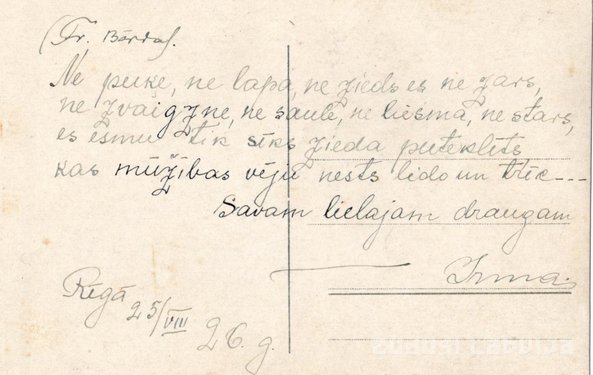 (Fr. Bārda).
Ne puķe, ne lapa, ne zieds es ne zars,
ne zvaigzne, ne saule, ne liesma, ne stars,
es esmu tik sīks zieda puteklīts
kas mūžības vēju nests lido un trīc---
Savam lielajam draugam
Irma.
Rīgā
25/VIII 26. g.